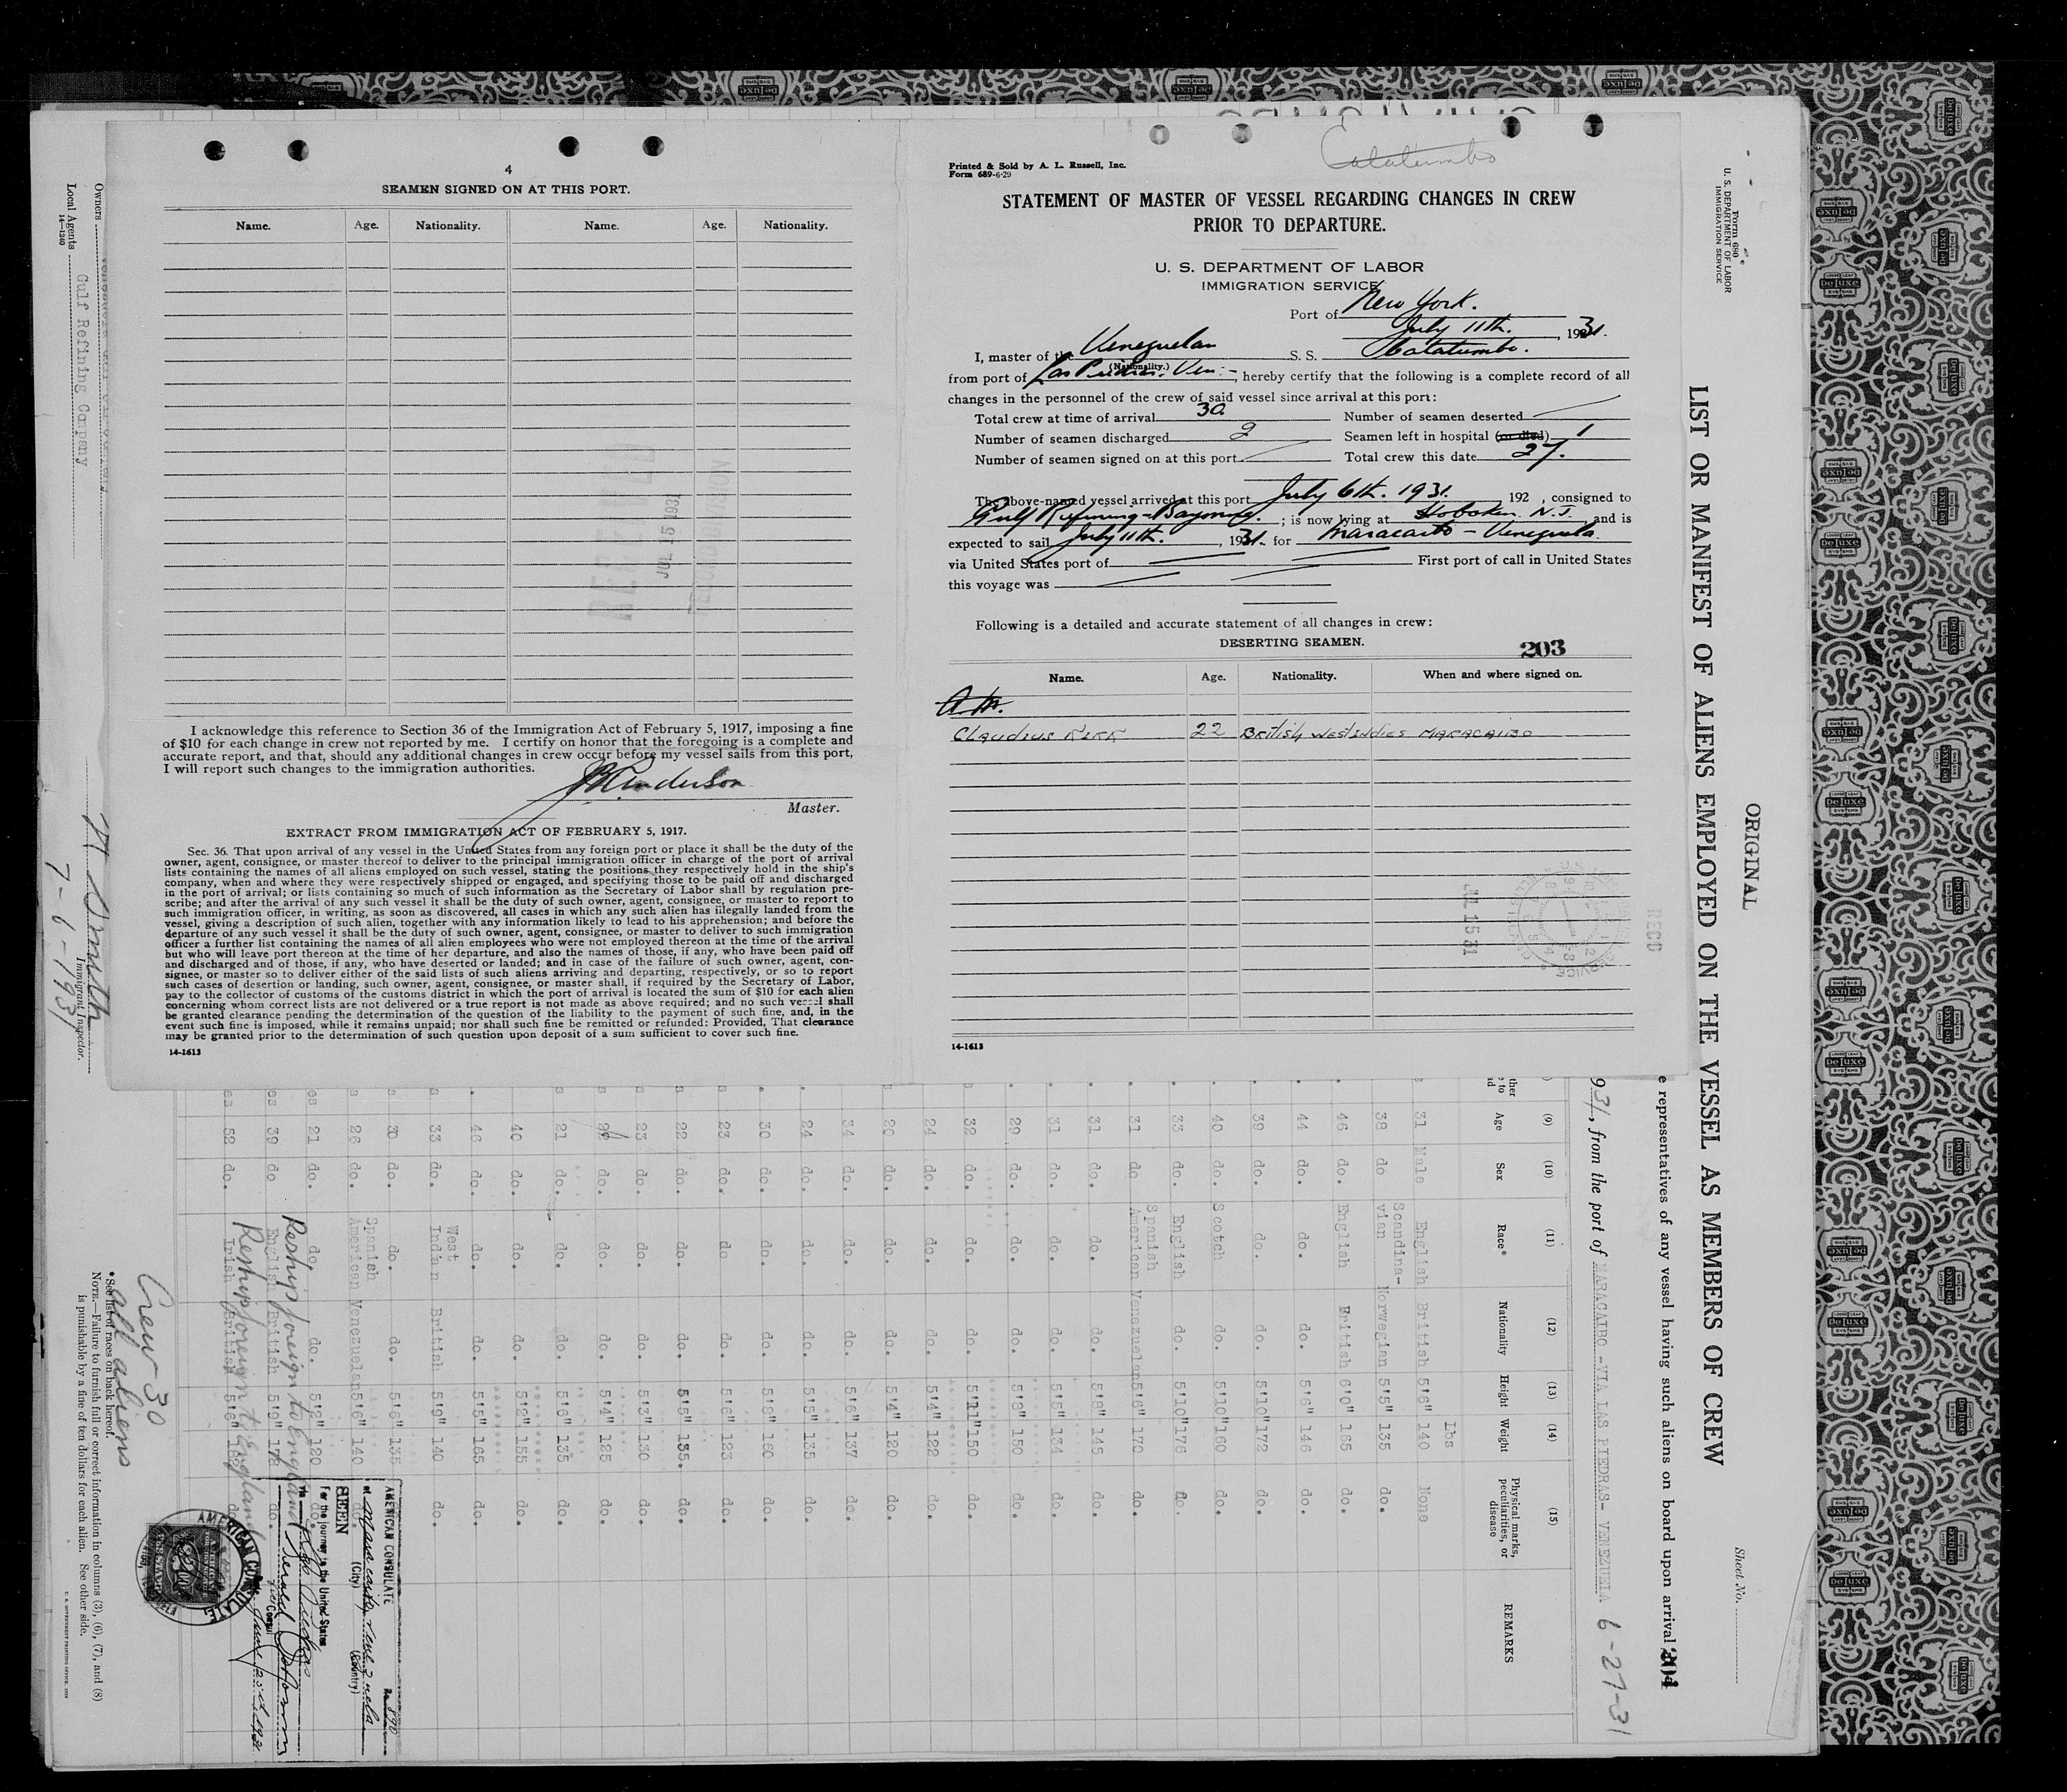 4
SEAMEN SIGNED ON AT THIS PORT.
Name. Age. Nationality. Name. Age. Nationality.
RECEIVED
JUL 15 1931
RECORD DIVISION
I acknowledge this reference to Section 36 of the Immigration Act of February 5, 1917, imposing a fine
of $10 for each change in crew not reported by me. I certify on honor that the foregoing is a complete and
accurate report, and that, should any additional changes in crew occur before my vessel sails from this port,
I will report such changes to the immigration authorities.
Anderson
Master.
EXTRACT FROM IMMIGRATION ACT OF FEBRUARY 5, 1917.
Sec. 36. That upon arrival of any vessel in the United States from any foreign port or place it shall be the duty of the
owner, agent, consignee, or master thereof to deliver to the principal immigration officer in charge of the port of arrival
lists containing the names of all aliens employed on such vessel, stating the positions they respectively hold in the ship's
company, when and where they were respectively shipped or engaged, and specifying those to be paid off and discharged
in the port of arrival; or lists containing so much of such information as the Secretary of Labor shall by regulation pre-
scribe; and after the arrival of any such vessel it shall be the duty of such owner, agent, consignee, or master to report to
such immigration officer, in writing, as soon as discovered, all cases in which any such alien has illegally landed from the
vessel, giving a description of such alien, together with any information likely to lead to his apprehension; and before the
departure of any such vessel it shall be the duty of such owner, agent, consignee, or master to deliver to such immigration
officer a further list containing the names of all alien employees who were not employed thereon at the time of the arrival
but who will leave port thereon at the time of her departure, and also the names of those, if any, who have been paid off
and discharged and of those, if any, who have deserted or landed; and in case of the failure of such owner, agent, con-
signee, or master so to deliver either of the said lists of such aliens arriving and departing, respectively, or so to report
such cases of desertion or landing, such owner, agent, consignee, or master shall, if required by the Secretary of Labor,
pay to the collector of customs of the customs district in which the port of arrival is located the sum of $10 for each alien
concerning whom correct lists are not delivered or a true report is not made as above required; and no such vessel shall
be granted clearance pending the determination of the question of the liability to the payment of such fine, and, in the
event such fine is imposed, while it remains unpaid; nor shall such fine be remitted or refunded: Provided, That clearance
may be granted prior to the determination of such question upon deposit of a sum sufficient to cover such fine.
14-1613
Catatumbo
Printed & Sold by A. L. Russell, Inc.
Form 689-6-29
STATEMENT OF MASTER OF VESSEL REGARDING CHANGES IN CREW
PRIOR TO DEPARTURE.
U. S. DEPARTMENT OF LABOR
IMMIGRATION SERVICE
Port of New York.
July 11th. , 1931.
I, master of the Venezuelan S. S. Catatumbo.
(Nationality.)
from port of Las Piedras. Ven:- , hereby certify that the following is a complete record of all
changes in the personnel of the crew of said vessel since arrival at this port:
Total crew at time of arrival 30. Number of seamen deserted
Number of seamen discharged 2 Seamen left in hospital (or died) 1
Number of seamen signed on at this port Total crew this date 27.
The above-named vessel arrived at this port July 6th. 1931. 192 , consigned to
Gulf Refining - Bayonne. ; is now lying at Hoboken N.J. and is
expected to sail July 11th. , 1931. for Maracaibo - Venezuela.
via United States port of First port of call in United States
this voyage was
Following is a detailed and accurate statement of all changes in crew:
DESERTING SEAMEN.
203
Name. Age. Nationality. When and where signed on.
Claudius Kirk 22 British West Indies MARACAIBO
RECD
JUL 15 31
14-1613
Form 680
U. S. DEPARTMENT OF LABOR
IMMIGRATION SERVICE
ORIGINAL
Sheet No.
LIST OR MANIFEST OF ALIENS EMPLOYED ON THE VESSEL AS MEMBERS OF CREW
e representatives of any vessel having such aliens on board upon arrival 204
931, from the port of MARACAIBO -VIA LAS PIEDRAS- VENEZUELA 6-27-31
(9) (10) (11) (12) (13) (14) (15)
Age Sex Race* Nationality Height Weight Physical marks, peculiarities, or disease REMARKS
Lbs
31 Male English British 5'6" 140 None
38 do Scandina-vian Norwegian 5'5" 135 do.
46 do. English British 6'0" 165 do.
44 do. do. do. 5'6" 146 do.
39 do. do. do. 5'10" 172 do.
40 do. Scotch do. 5'10" 160 do.
33 do. English do. 5'10" 176 do.
31 do Spanish American Venezuelan 5'6" 170 do.
31 do. do. do. 5'8" 145 do.
31 do. do. do. 5'5" 134 do.
29 do. do. do. 5'8" 150 do.
32 do. do. do. 5'11" 150 do.
24 do. do. do. 5'4" 122 do.
20 do. do. do. 5'4" 120 do.
34 do. do. do. 5'6" 137 do.
24 do. do. do. 5'5" 135 do.
30 do. do. do. 5'8" 160 do.
23 do. do. do. 5'6" 123 do.
22 do. do. do. 5'5" 135. do.
23 do. do. do. 5'3" 130 do.
do. do. do. 5'4" 125 do.
21 do. do. do. 5'6" 135 do.
40 do. do. do. 5'2" 155 do.
46 do. do. do. 5'5" 165 do.
33 do. West Indian British 5'9" 140 do.
30 do. do. do. 5'6" 135
26 do. Spanish American Venezuelan 5'6" 140 do.
21 do. do. do. 5'2" 120 do.
39 do English British 5'9" 172 do.
52 do. Irish British 5'6" do.
Reship foreign to England
Reship foreign to England
AMERICAN CONSULATE
at Maracaibo, Venezuela
(City) (Country)
SEEN
For the journey to the United States
via Las Piedras
Gerald
Vice Consul
AMERICAN CONSULATE
Crew 30
all aliens
*See list of races on back hereof.
NOTE.—Failure to furnish full or correct information in columns (3), (6), (7), and (8)
is punishable by a fine of ten dollars for each alien. See other side.
U. S. GOVERNMENT PRINTING OFFICE
Owners
Local Agents Gulf Refining Company
14-1240
Smith
Immigrant Inspector.
7-6-1931